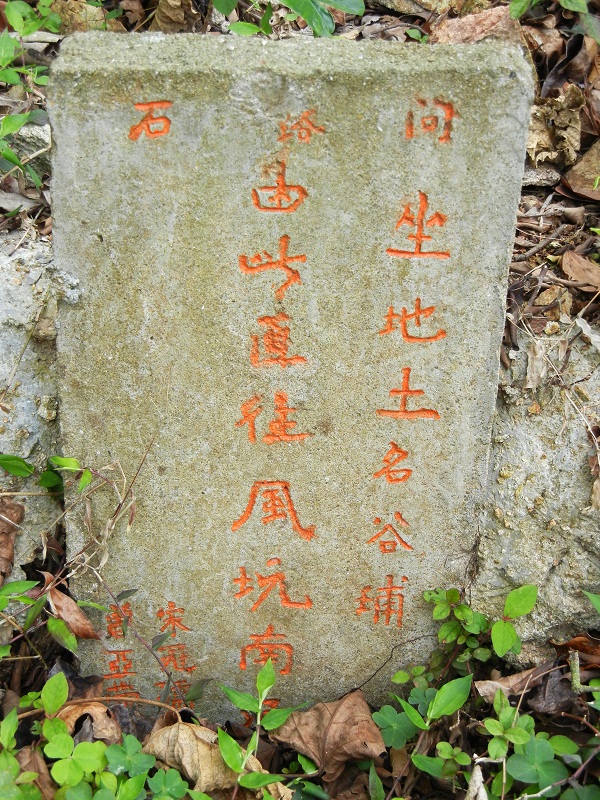 問路石
坐地土名谷埔
由此直往風坑南
宋
曾亞